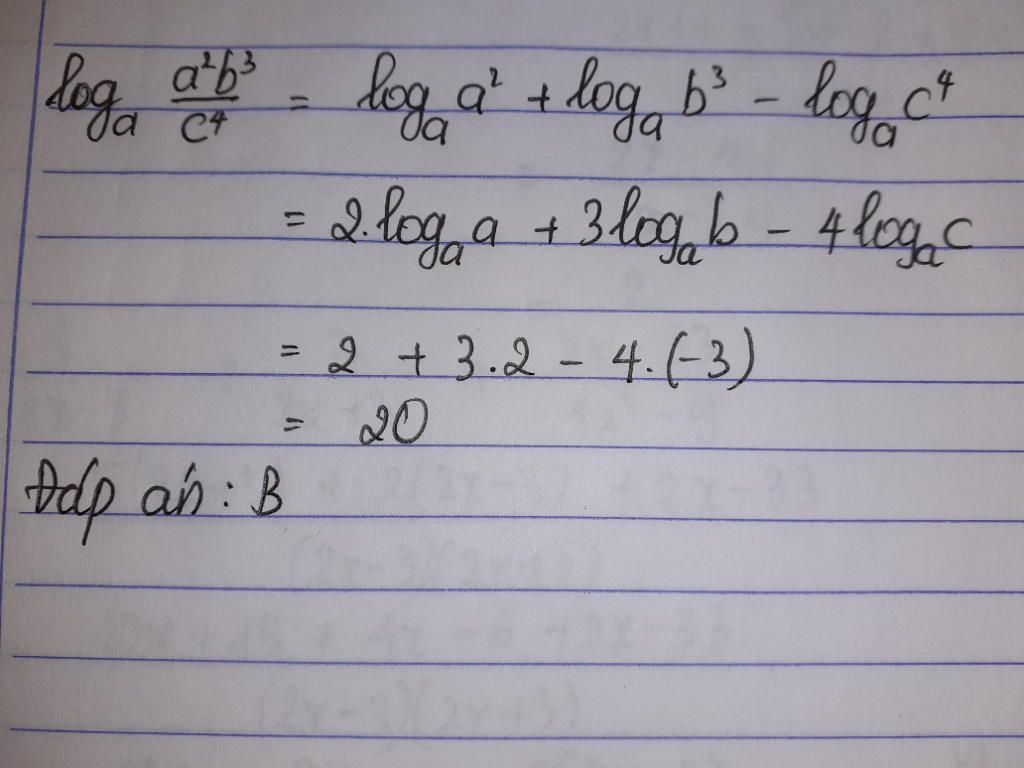 logₐ a²b³/c⁴ = logₐ a² + logₐ b³ − logₐ c⁴
= 2.logₐ a + 3logₐ b − 4logₐ c
= 2 + 3.2 − 4.(−3)
= 20
Đáp án: B